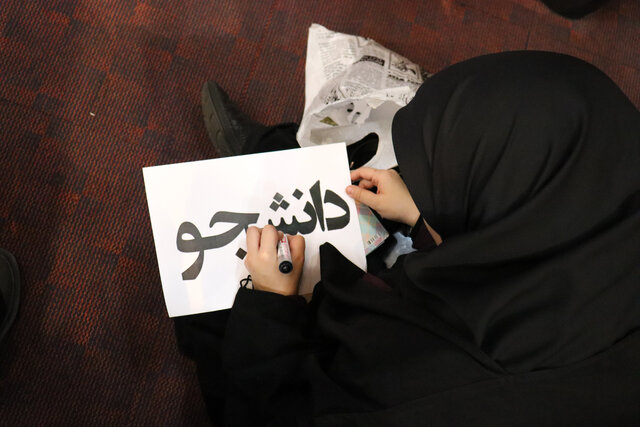 دانشجو